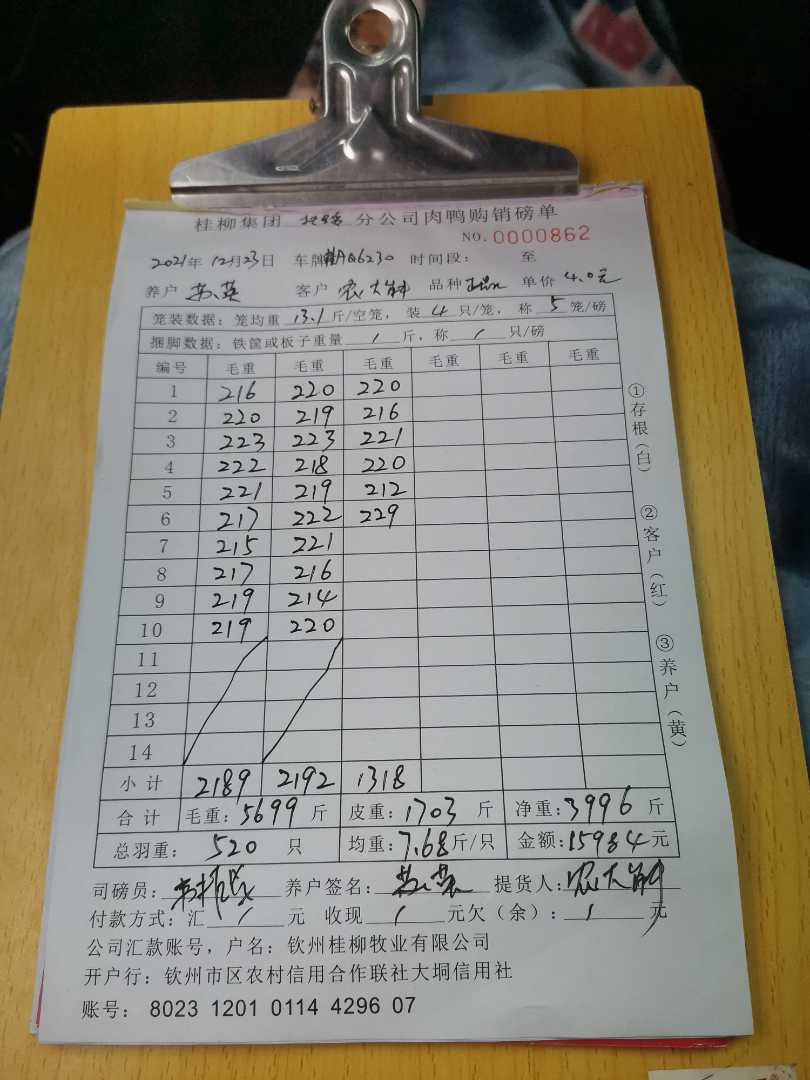 桂柳集团 分公司肉鸭购销磅单
NO. 0000862
2021年 12月23日 车牌 桂AQ6230 时间段： 至
养户 客户 农大 品种 单价 4.0元
笼装数据：笼均重 13.1 斤/空笼，装 4 只/笼，称 5 笼/磅
捆脚数据：铁筐或板子重量 / 斤，称 / 只/磅
编号 毛重 毛重 毛重 毛重 毛重 毛重
1 216 220 220
2 220 219 216
3 223 223 221
4 222 218 220
5 221 219 212
6 217 222 229
7 215 221
8 217 216
9 219 214
10 219 220
11
12
13
14
小计 2189 2192 1318
合计 毛重：5699 斤 皮重：1703 斤 净重：3996 斤
总羽重： 520 只 均重：7.68斤/只 金额：15984元
司磅员： 养户签名： 提货人：农大
付款方式：汇 / 元 收现 / 元欠（余）： / 元
公司汇款账号，户名：钦州桂柳牧业有限公司
开户行：钦州市区农村信用合作联社大垌信用社
账号： 8023 1201 0114 4296 07
①存根（白）
②客户（红）
③养户（黄）